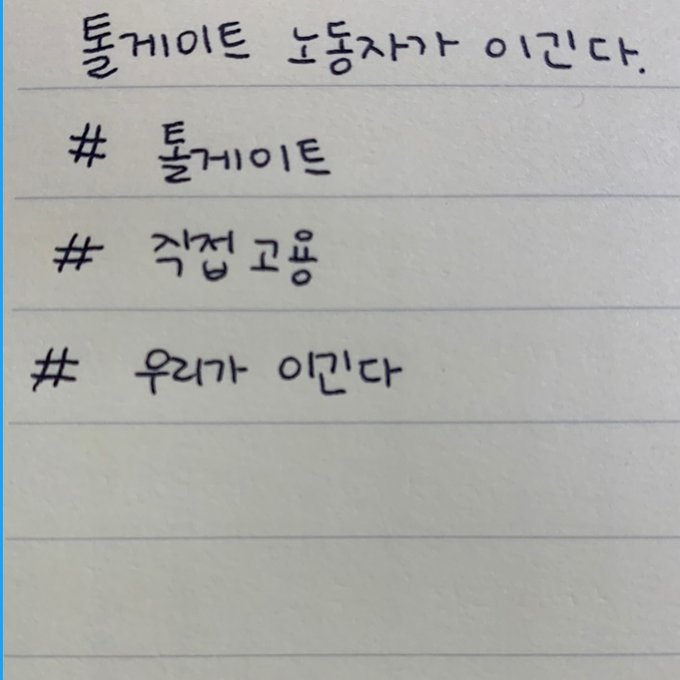 톨게이트 노동자가 이긴다.
# 톨게이트
# 직접고용
# 우리가 이긴다